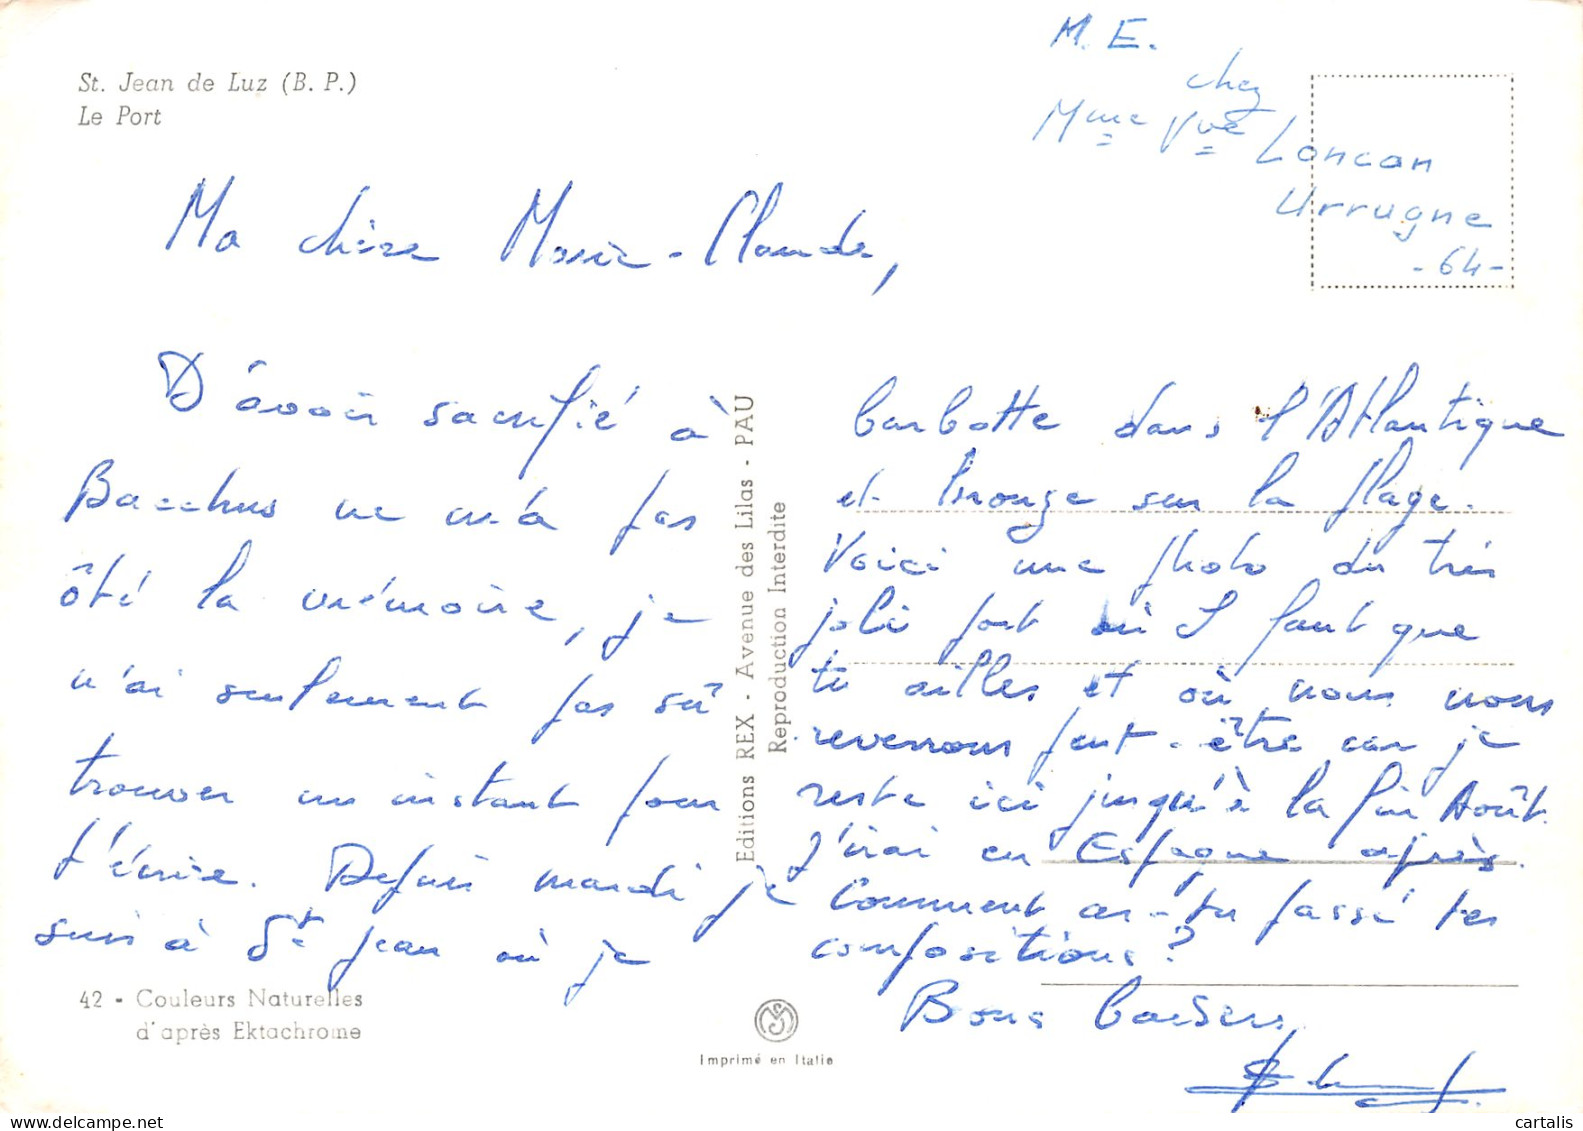 St. Jean de Luz (B. P.)
Le Port
M. E.
chez
Mme Vve Loncan
Urrugne
- 64 -
Ma chère Marie-Claude,
D'avoir sacrifié à
Bacchus ne m'a pas
ôté la mémoire, je
n'ai seulement pas sû
trouver un instant pour
t'écrire. Depuis mardi je
suis à St Jean où je
barbotte dans l'Atlantique
et bronze sur la plage.
Voici une photo du très
joli port où il faut que
tu ailles et où nous nous
reverrons peut-être car je
reste ici jusqu'à la fin Août.
J'irai en Espagne après.
Comment as-tu passé tes
compositions ?
Bons baisers
Editions REX - Avenue des Lilas - PAU
Reproduction Interdite
42 - Couleurs Naturelles
d'après Ektachrome
Imprimé en Italie
cartalis